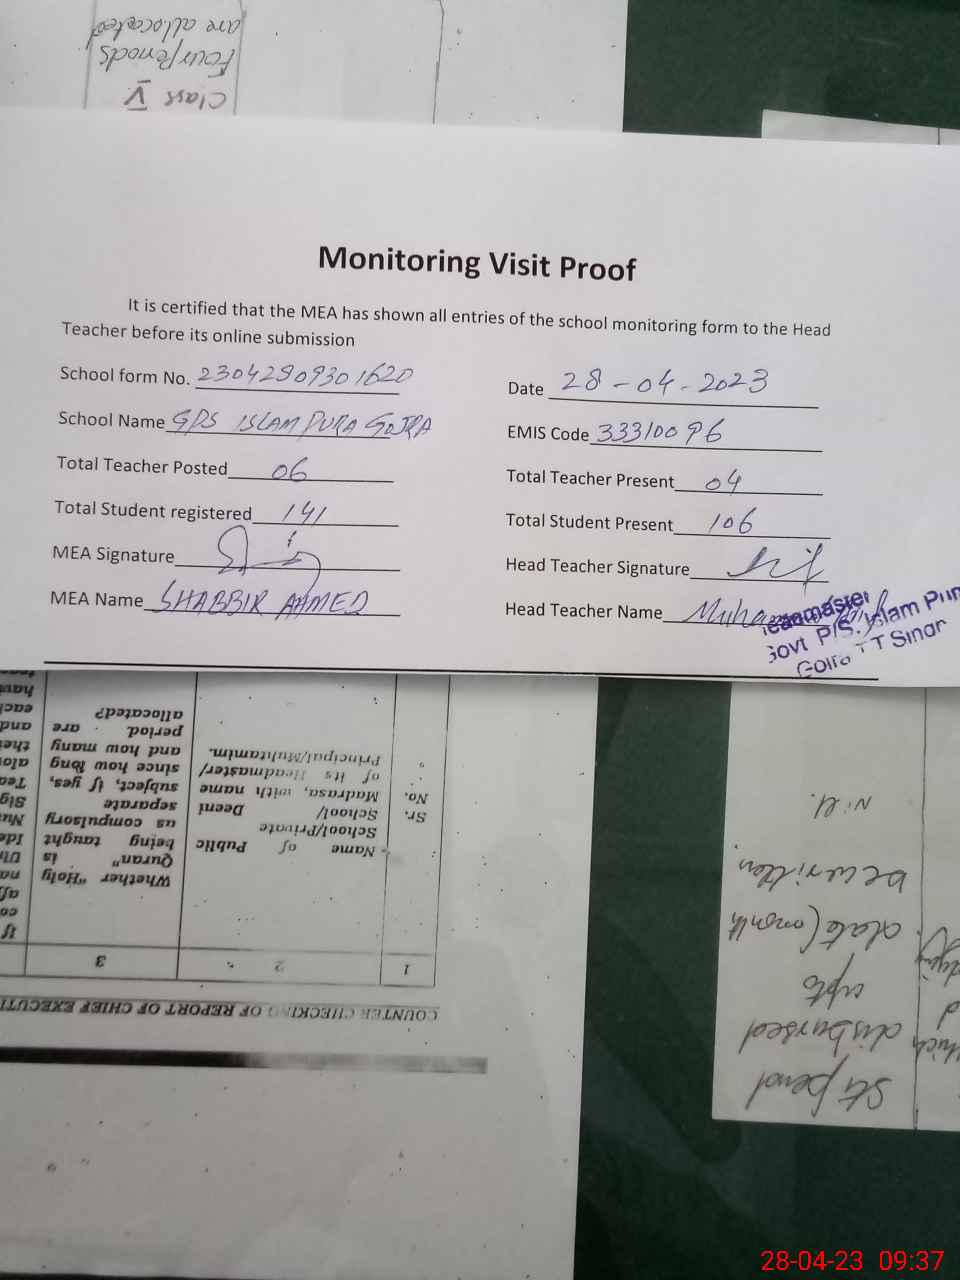 are allocated
Four Periods
Class V
Monitoring Visit Proof
It is certified that the MEA has shown all entries of the school monitoring form to the Head
Teacher before its online submission
School form No. 23042809301620
Date 28-04-2023
School Name GPS ISLAM PURA GOJRA
EMIS Code 33310096
Total Teacher Posted 06
Total Teacher Present 04
Total Student registered 141
Total Student Present 106
MEA Signature
Head Teacher Signature
MEA Name SHABBIR AHMED
Head Teacher Name
Headmaster
Govt P/S. Islam Pur
T T Sing
COUNTER CHECKING OF REPORT OF CHIEF EXECUTI
1
2
3
Sr.
No.
Name of Public
School/Private
School/ Deeni
Madrasa, with name
of its Headmaster/
Principal/Muhtamim.
Whether "Holy
Quran" is
being taught
us compulsory
separate
subject, if yes,
since how long
and how many
period are
allocated?
Stipend
disbursed
upto
date (month
be written.
Nil.
28-04-23 09:37